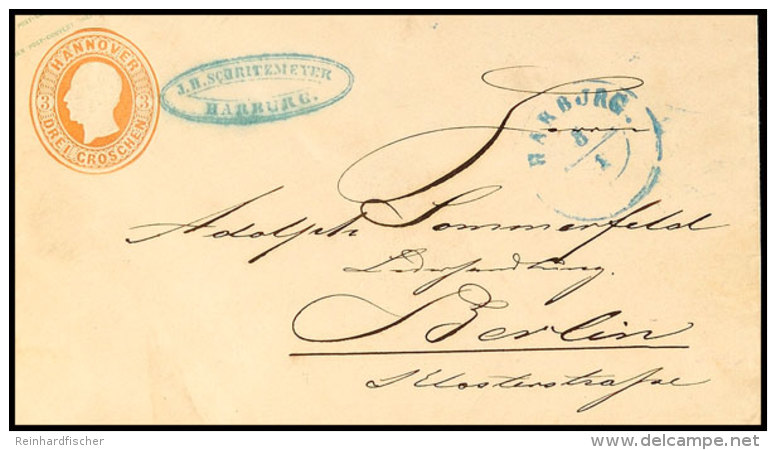 HANNOVER
3 3
DREI GROSCHEN
J.H. SCHRITZMEYER
HARBURG.
HARBURG.
5/1
Herrn
Adolph Sommerfeld
Lederhandlung.
Berlin
Klosterstraße
Reinhardfischer
delcampe.net